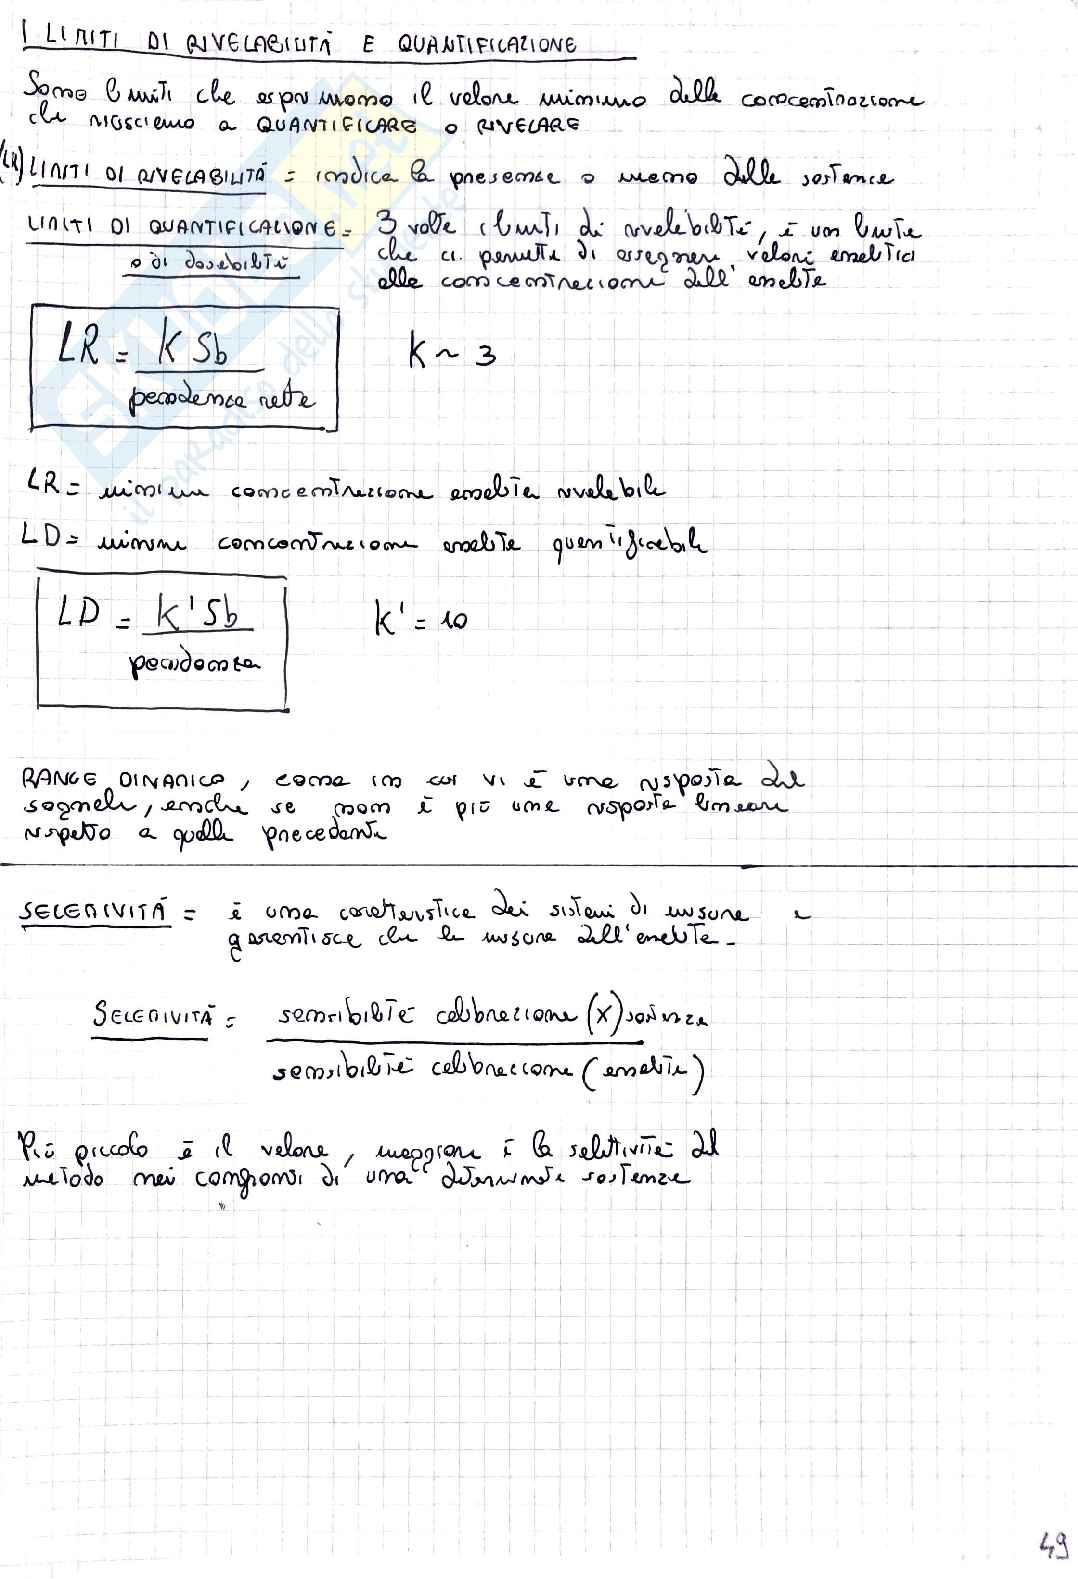 I LIMITI DI RIVELABILITÀ E QUANTIFICAZIONE
Sono limiti che esprimono il valore minimo della concentrazione
che riusciamo a QUANTIFICARE o RIVELARE
(LR) LIMITI DI RIVELABILITÀ = indica la presenza o meno della sostanza
LIMITI DI QUANTIFICAZIONE = 3 volte i limiti di rivelabilità, è un limite
o di dosabilità che ci permette di assegnare valori analitici
alla concentrazione dell'analita
LR = K Sb
pendenza retta
K ~ 3
LR = minima concentrazione analita rivelabile
LD = minima concentrazione analita quantificabile
LD = K' Sb
pendenza
K' = 10
RANGE DINAMICO, zona in cui vi è una risposta del
segnale, anche se non è più una risposta lineare
rispetto a quella precedente
SELETTIVITÀ = è una caratteristica dei sistemi di misura e
garantisce che la misura dell'analita -
SELETTIVITÀ = sensibilità calibrazione (X) sostanza
sensibilità calibrazione (analita)
Più piccolo è il valore, maggiore è la selettività del
metodo nei confronti di una determinata sostanza
49